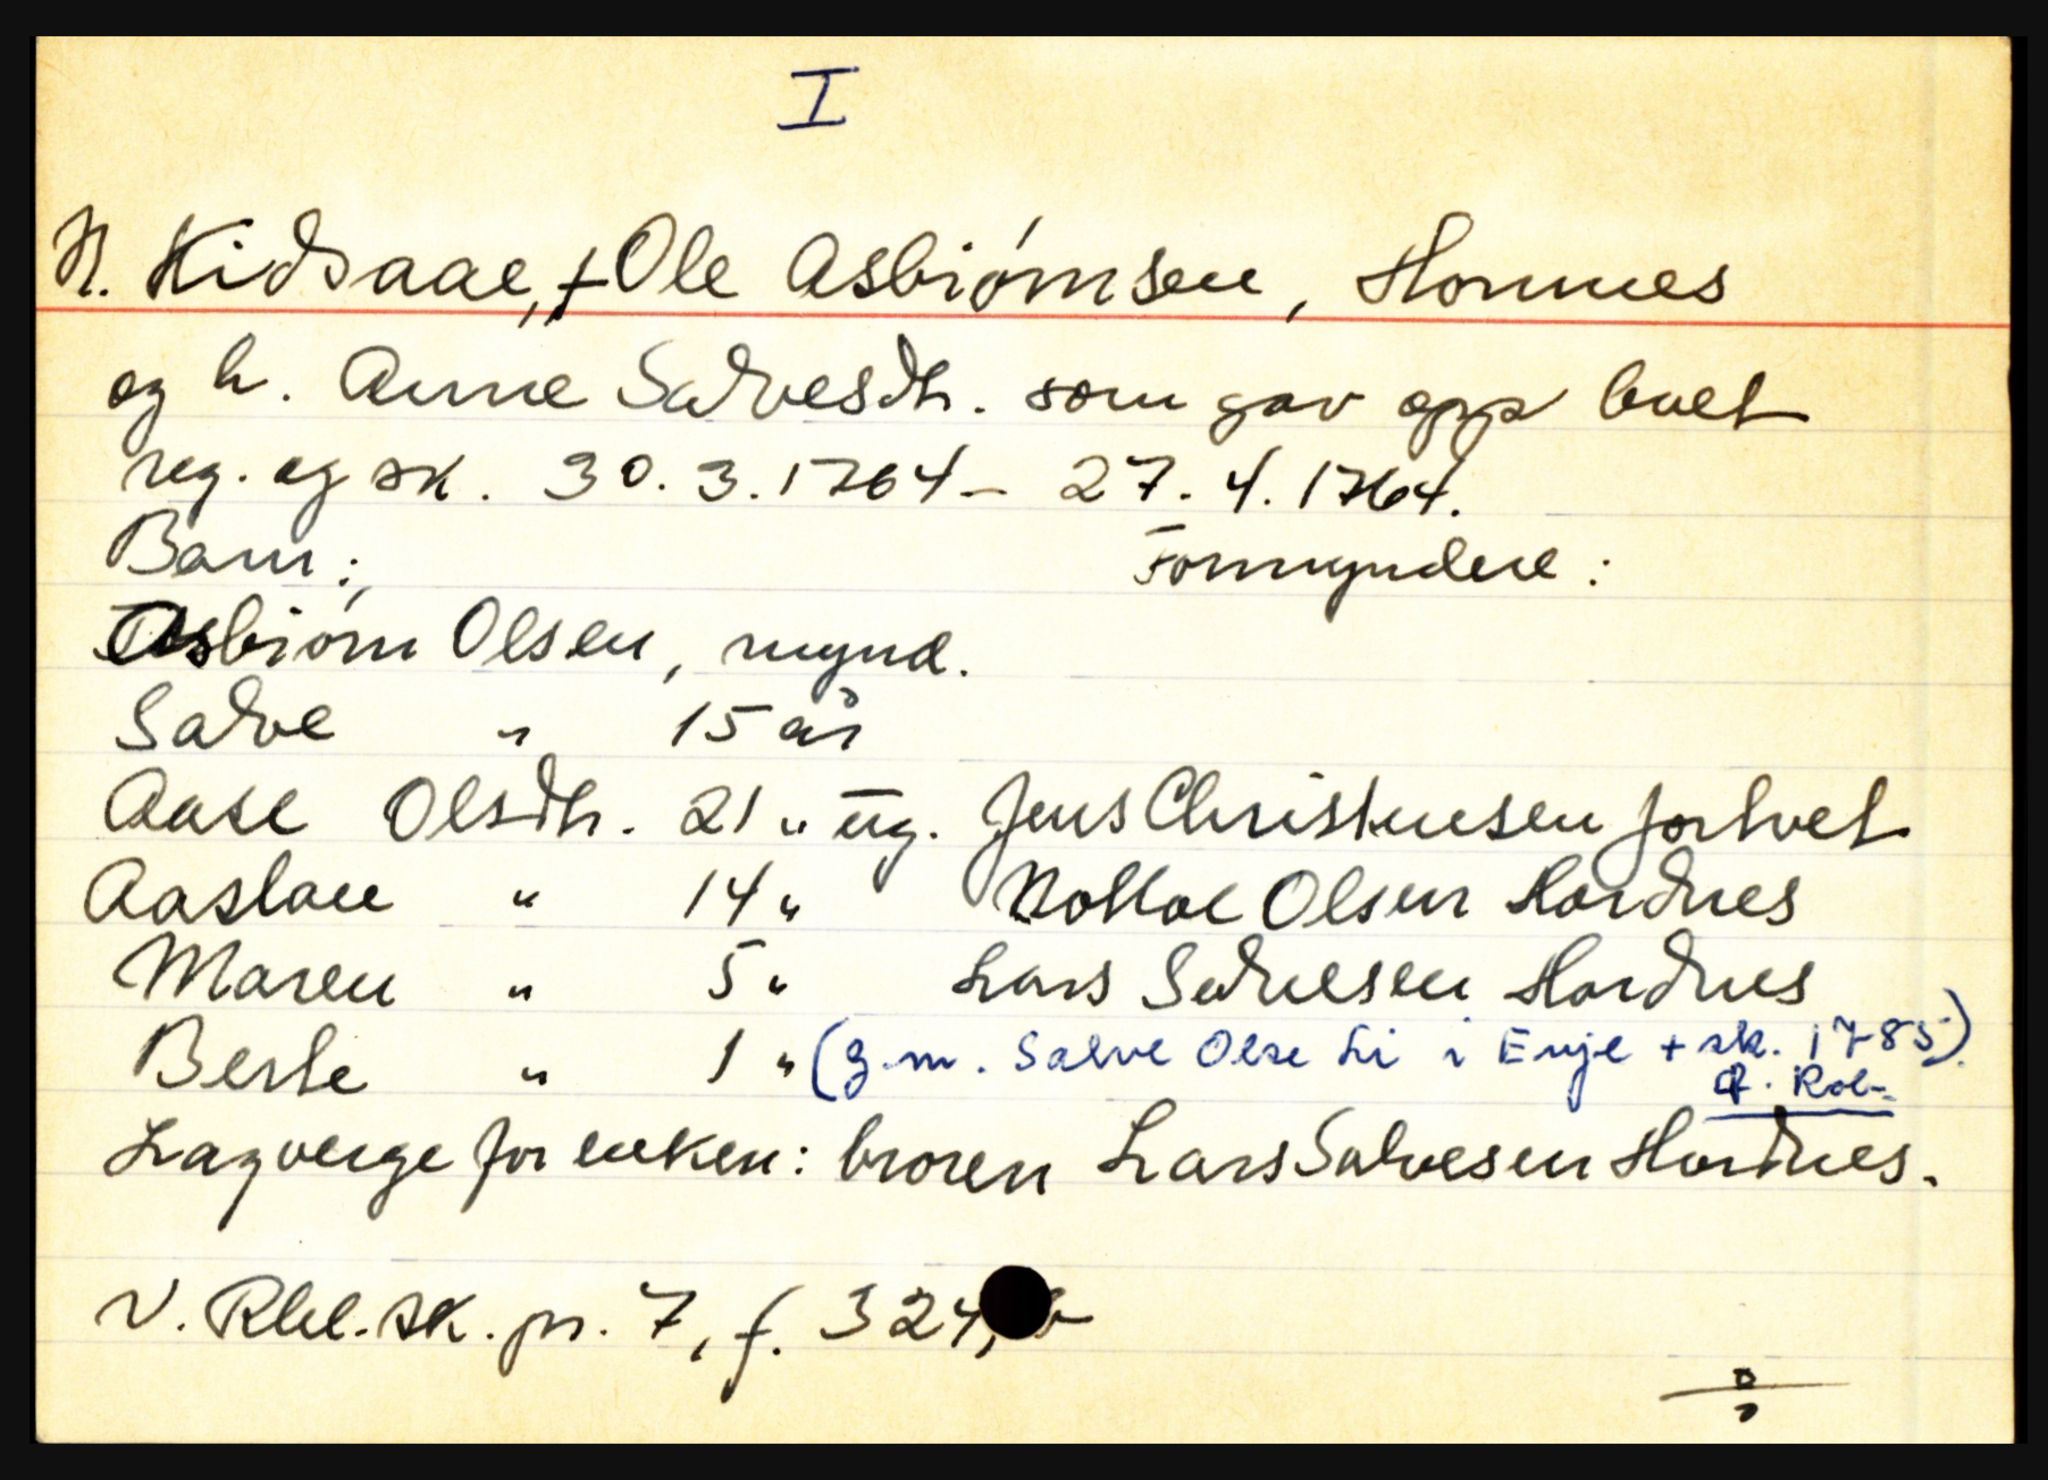 I
N. Kidsaae, + Ole Asbiørnsen, Hornnes
og h. Anne Salvesdtr. som gav opp boet
reg. og sk. 30.3.1764 - 27.4.1764.
Barn: Formyndere:
Asbiørn Olsen, mynd.
Salve " 15 år
Aase Olsdtr. 21 " ug. Jens Christensen Fortvet
Aaslau " 14 " Olsen Hordnes
Maren " 5 " Lars Salvesen Hordnes
Berte " 1 " (g.m. Salve Olse Li i Evje + sk. 1785)
Rob-
Lagverge for enken: broren Lars Salvesen Hordnes.
V. Rbl. sk. pr. 7, f. 324, b